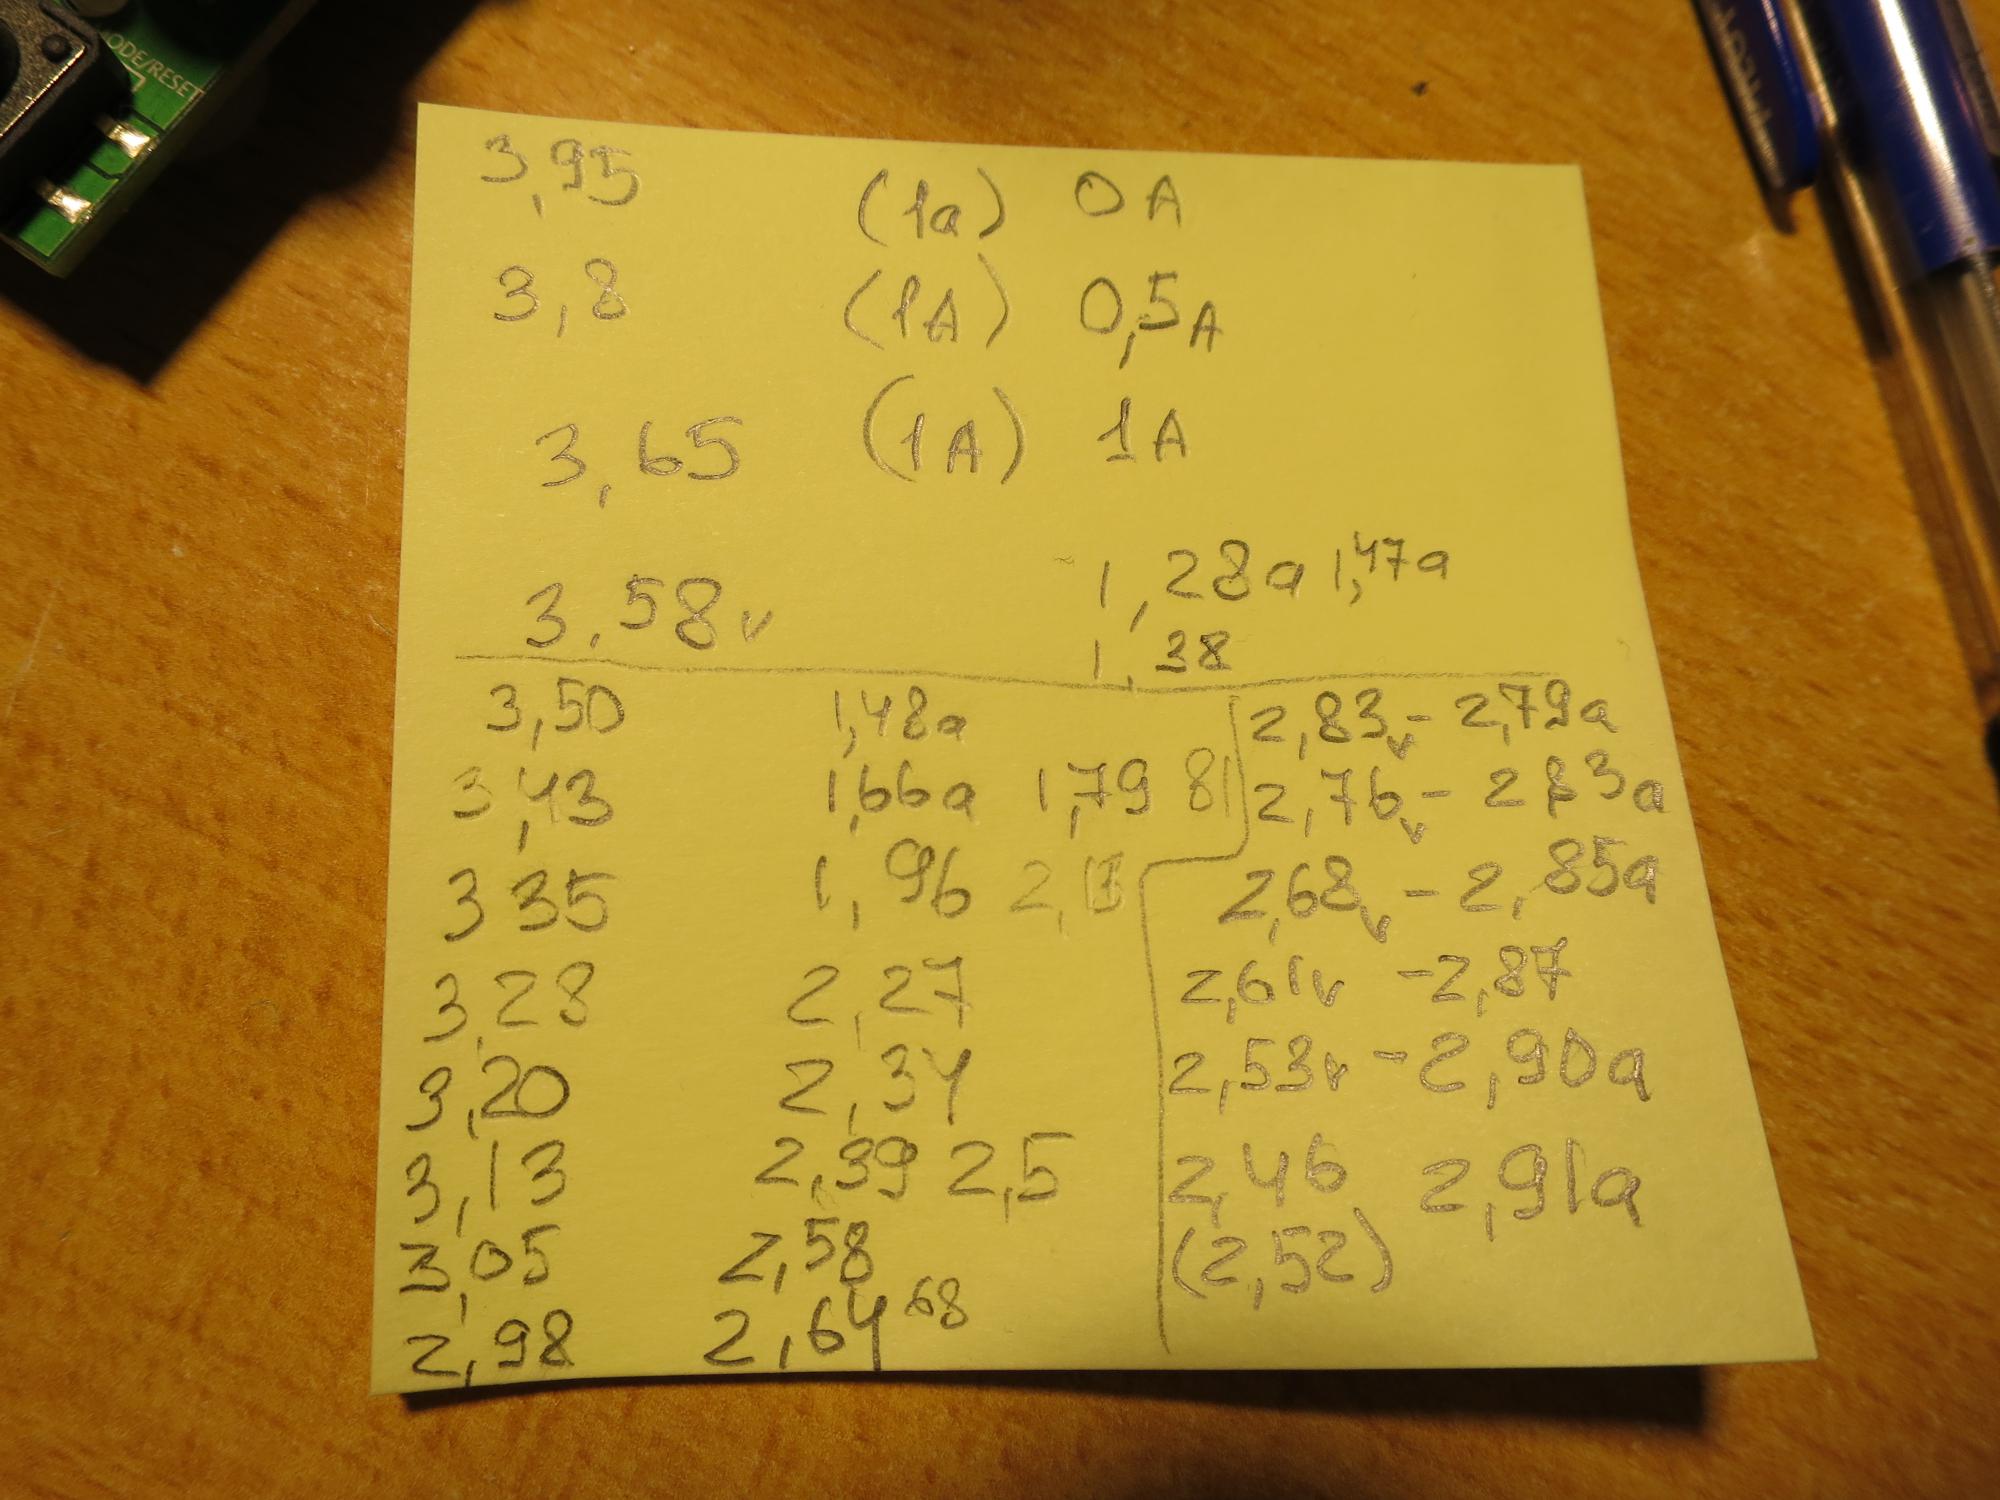 ODE/RESET
3,95 (1a) 0A
3,8 (1A) 0,5A
3,65 (1A) 1A
3,58v 1,28a 1,47a
1,38
3,50 1,48a
3,43 1,66a 1,79 81
3 35 1,96
3,28 2,27
3,20 2,34
3,13 2,39 2,5
3,05 2,58
2,98 2,64 68
2,83v - 2,79a
2,76v - 2 83a
2,68v - 2,85a
2,61v - 2,87
2,53v - 2,90a
2,46 2,91a
(2,52)